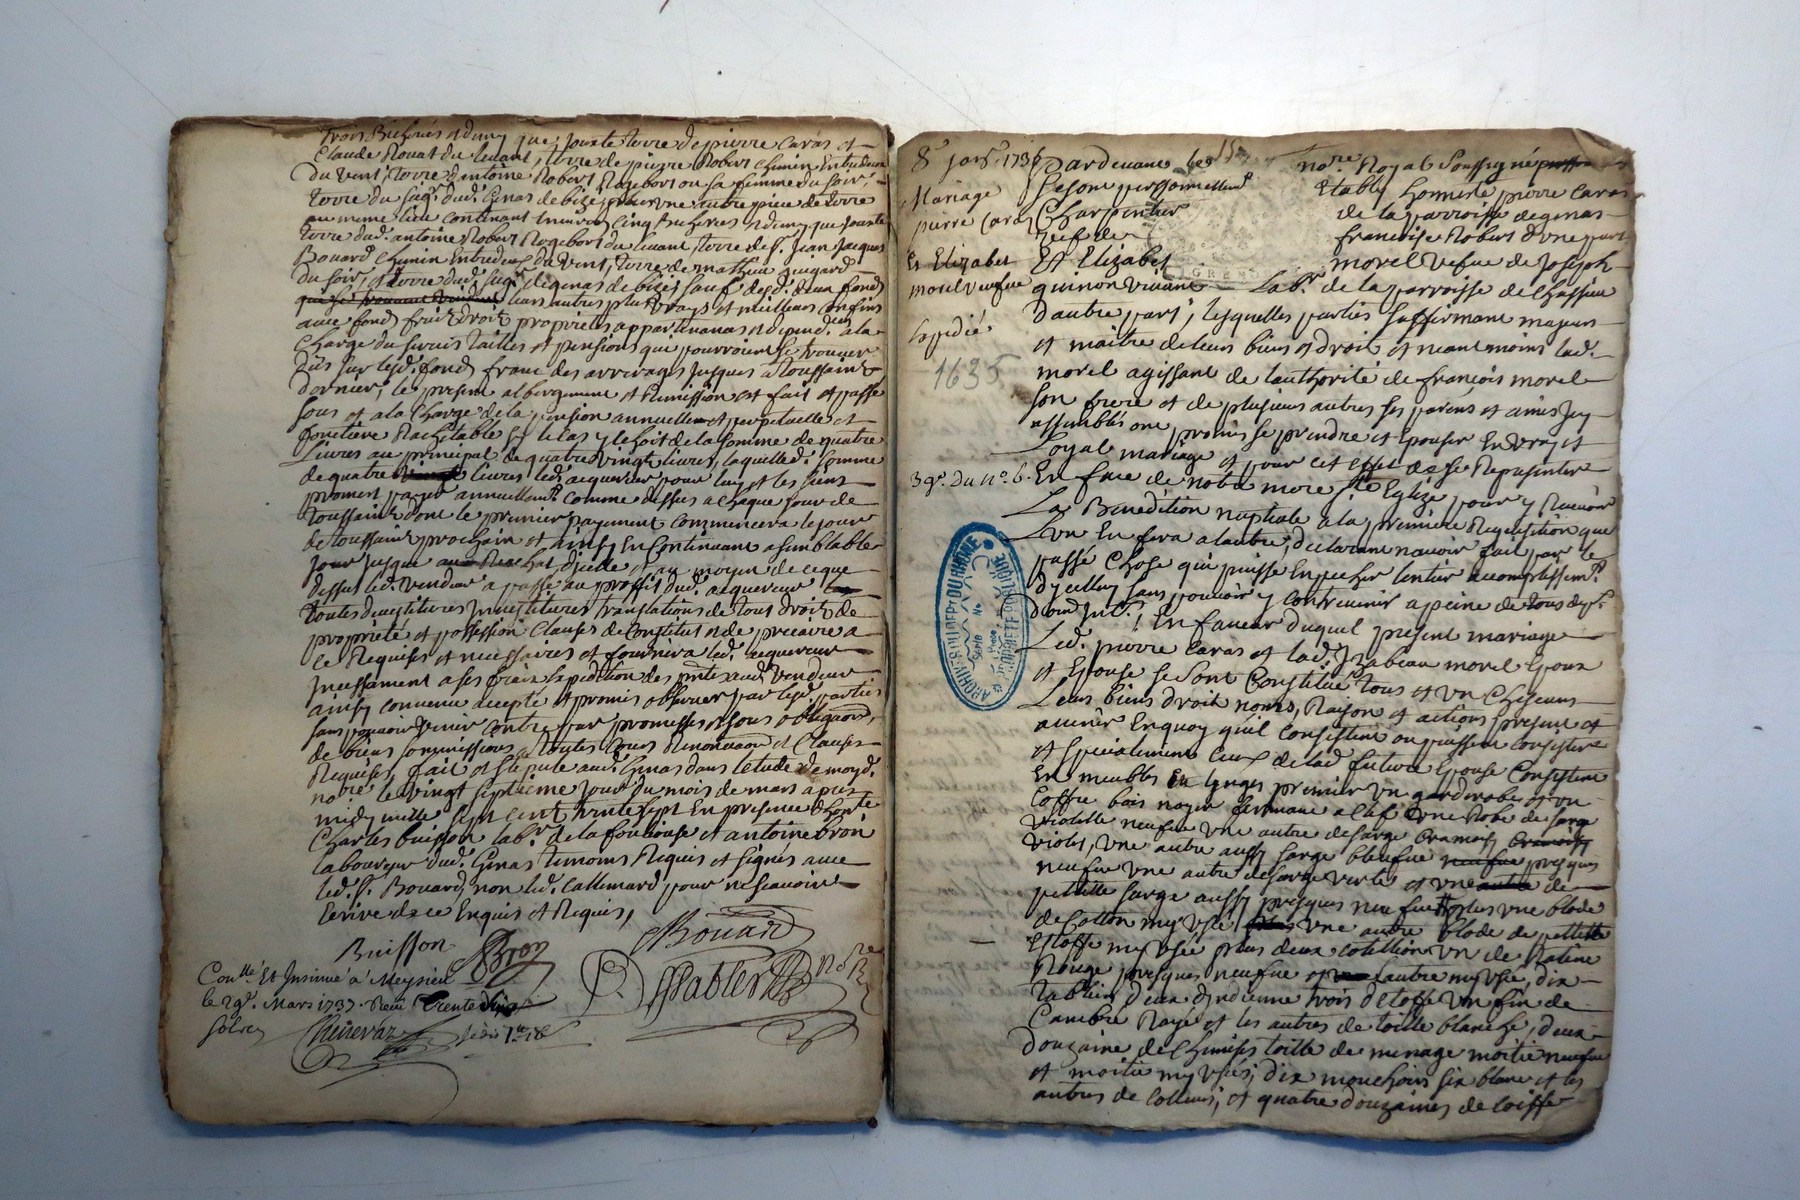 trois Bicherés et demy que jouxte terre de pierre Caras et
Claude Rouat du levant, terre de pierre Robert chemin Entredeux
du vent, terre dantoine Robert Rogebort ou sa femme du soir,
terre du Sieg.r dud. Genas de bize, plus une autre piece de terre
au meme lieu contenant Environ cinq Bicherés et demy que jouxte
terre dud. antoine Robert Rogebort du levant, terre de S.r Jean Jacques
Bouard chemin entredeux du vent, terre de mathieu guigard
du soir, et terre dud. Seig.r de genas de bize, sauf desd. deux fonds
leurs autres plus vrays et meilleurs confins
avec fond fruit droit proprietés appartenances et depend.ces a la
Charge du servis tailles et pensions qui pourroient se trouver
Dus sur lesd. fonds franc des arrerages jusques a toussaint
dernier, le present albergement et Remission est fait et passé
sous et a la Charge de la pension annuelle et perpetuelle et
fonciere Rachetable Sy le cas y Eschoit de la somme de quatre
Livres au principal de quatre vingt livres, laquelle d. somme
de quatre livres led. acquereur pour luy et les siens
promet payer annuellem.t comme dessus a chaque jour de
toussaint dont le premier payement commencera le jour
de toussaint prochain et ainsy En continuant a semblable
jour jusque au Rachat dicelle et au moyen de ce que
dessus led. vendeur a passé au proffit dud. acquereur
toutes devestitures Investitures translations de tous droit de
proprieté et possession Clauses de Constitut et de precaire a
ce Requises et necessaires et fournira led. acquereur
Incessament a ses fraix Expedition des pntes aud. vendeur
ainsy convenu accepté et promis observer par lesd. parties
sans pouvoir venir contre par promesses et sous obligaons
de biens soummissions a toutes Cours Renonciaon et Clauses
Requises, fait et stipulé aud. Genas dans letude de moyd.
no.re le vingt septieme jour du mois de mars apres
midy mille sept cent trente sept En presence dhon.te
Charles buisson lab.r de la fouliouse et antoine bron
laboureur dud. Genas temoins Requis et signés avec
led. S.r Bouard non led. Callemard pour ne scavoir
Ecrire de ce Enquis et Requis,
Buisson ABron Bouard
Con.llé Et Insinué à Meysieu Sablier No.re R
le 29.e Mars 1737. Receu Trente
solz
8.e janv. 1736
Mariage
pierre Caraz
Et Elizabet
morel veufve
Expedié
1635
3 g.e du n.o 6.
Pardevant les no.re Royal Soussigné
Seson personnellem.t Etably honnete pierre Caras
Charpentier de la parroisse de genas
veuf de francoise Robert d'une part
Et Elizabet morel vefve de joseph
guinon vivant Lab.r de la parroisse de Chassieu
dautre part, lesquelles parties saffirmant majeurs
et maitre de leurs biens et droit et neantmoins lad.
morel agissant de lauthorité de francois morel
son frere et de plusieurs autres ses parens et amis Icy
assemblés ont promis se prendre et Epouser En vray et
Loyal mariage et pour cet effet de se Representer
En face de notre mere S.te Eglize pour y Recevoir
La Benediction nuptiale a la premiere Requisition que
Lun En fera a lautre, declarant navoir fait par le
passé chose qui puisse Enpecher lentier accomplissem.t
dicelluy sans pouvoir y contrevenir a peine de tous dep.s
dom. Int.; En faveur duquel present mariage
Led. pierre Caras et lad. Izabeau morel Epoux
et Epouse se sont Constitué tous et un Chascuns
Leurs biens droit noms, Raison et actions present et
avenir En quoy quil consistent ou puissent consister
et specialement Ceux de lad. future Epouse Consistent
En meubles et linges premier un garderobe et un
Coffre bois noyer fermant a clef Une Robe de sarge
violette neufve une autre de sarge Cramoisy
violet, une autre aussy sarge bleufve presques
neufve une autre de sarge verte et une de
petitte sarge aussy presques neufve plus une blode
de Cotton my usée une autre blode de petitte
Estoffe my usée plus deux cotillion un de Ratine
Rouge presques neufve et lautre my usée, dix
tablier deux dindienne trois detoffe un fin de
Cambre Rayé et les autres de toille blanche, deux
douzaine de chemises toille de menage moitié neufve
et moitié my usées, dix mouchoirs six blanc et les
autres de couleurs, et quatre douzaines de coiffe
ARCHIVES DU DEP.T DU RHÔNE